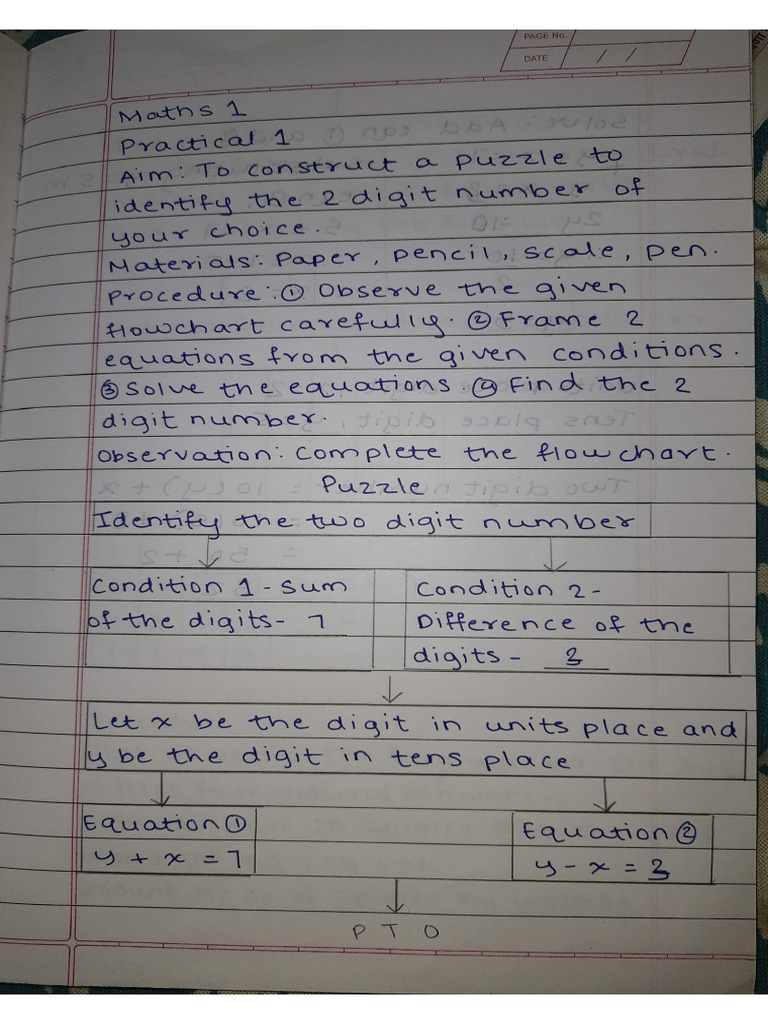 PAGE No.
DATE / /
Maths 1
Practical 1
Aim: To construct a puzzle to
identify the 2 digit number of
your choice.
Materials: Paper, pencil, scale, pen.
Procedure: ① Observe the given
flowchart carefully. ② Frame 2
equations from the given conditions.
③ Solve the equations. ④ Find the 2
digit number.
Observation: Complete the flowchart.
Puzzle
Identify the two digit number
Condition 1 - Sum
of the digits - 7
Condition 2 -
Difference of the
digits - 3
Let x be the digit in units place and
y be the digit in tens place
Equation ①
y + x = 7
Equation ②
y - x = 3
P T O